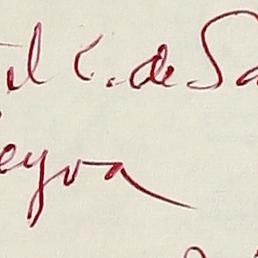 il C. de Sa
eyva